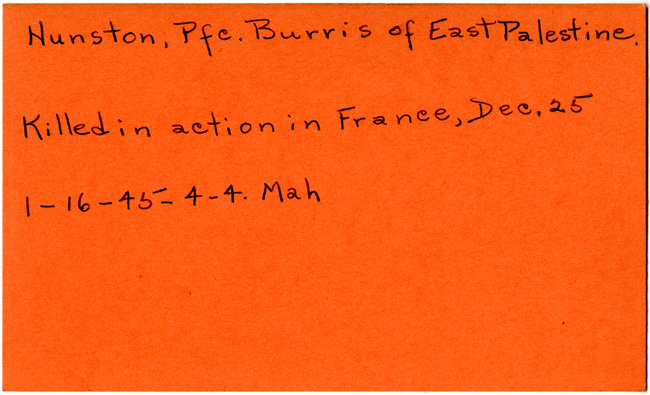 Hunston, Pfc. Burris of East Palestine.
Killed in action in France, Dec. 25
1-16-45-4-4. Mah